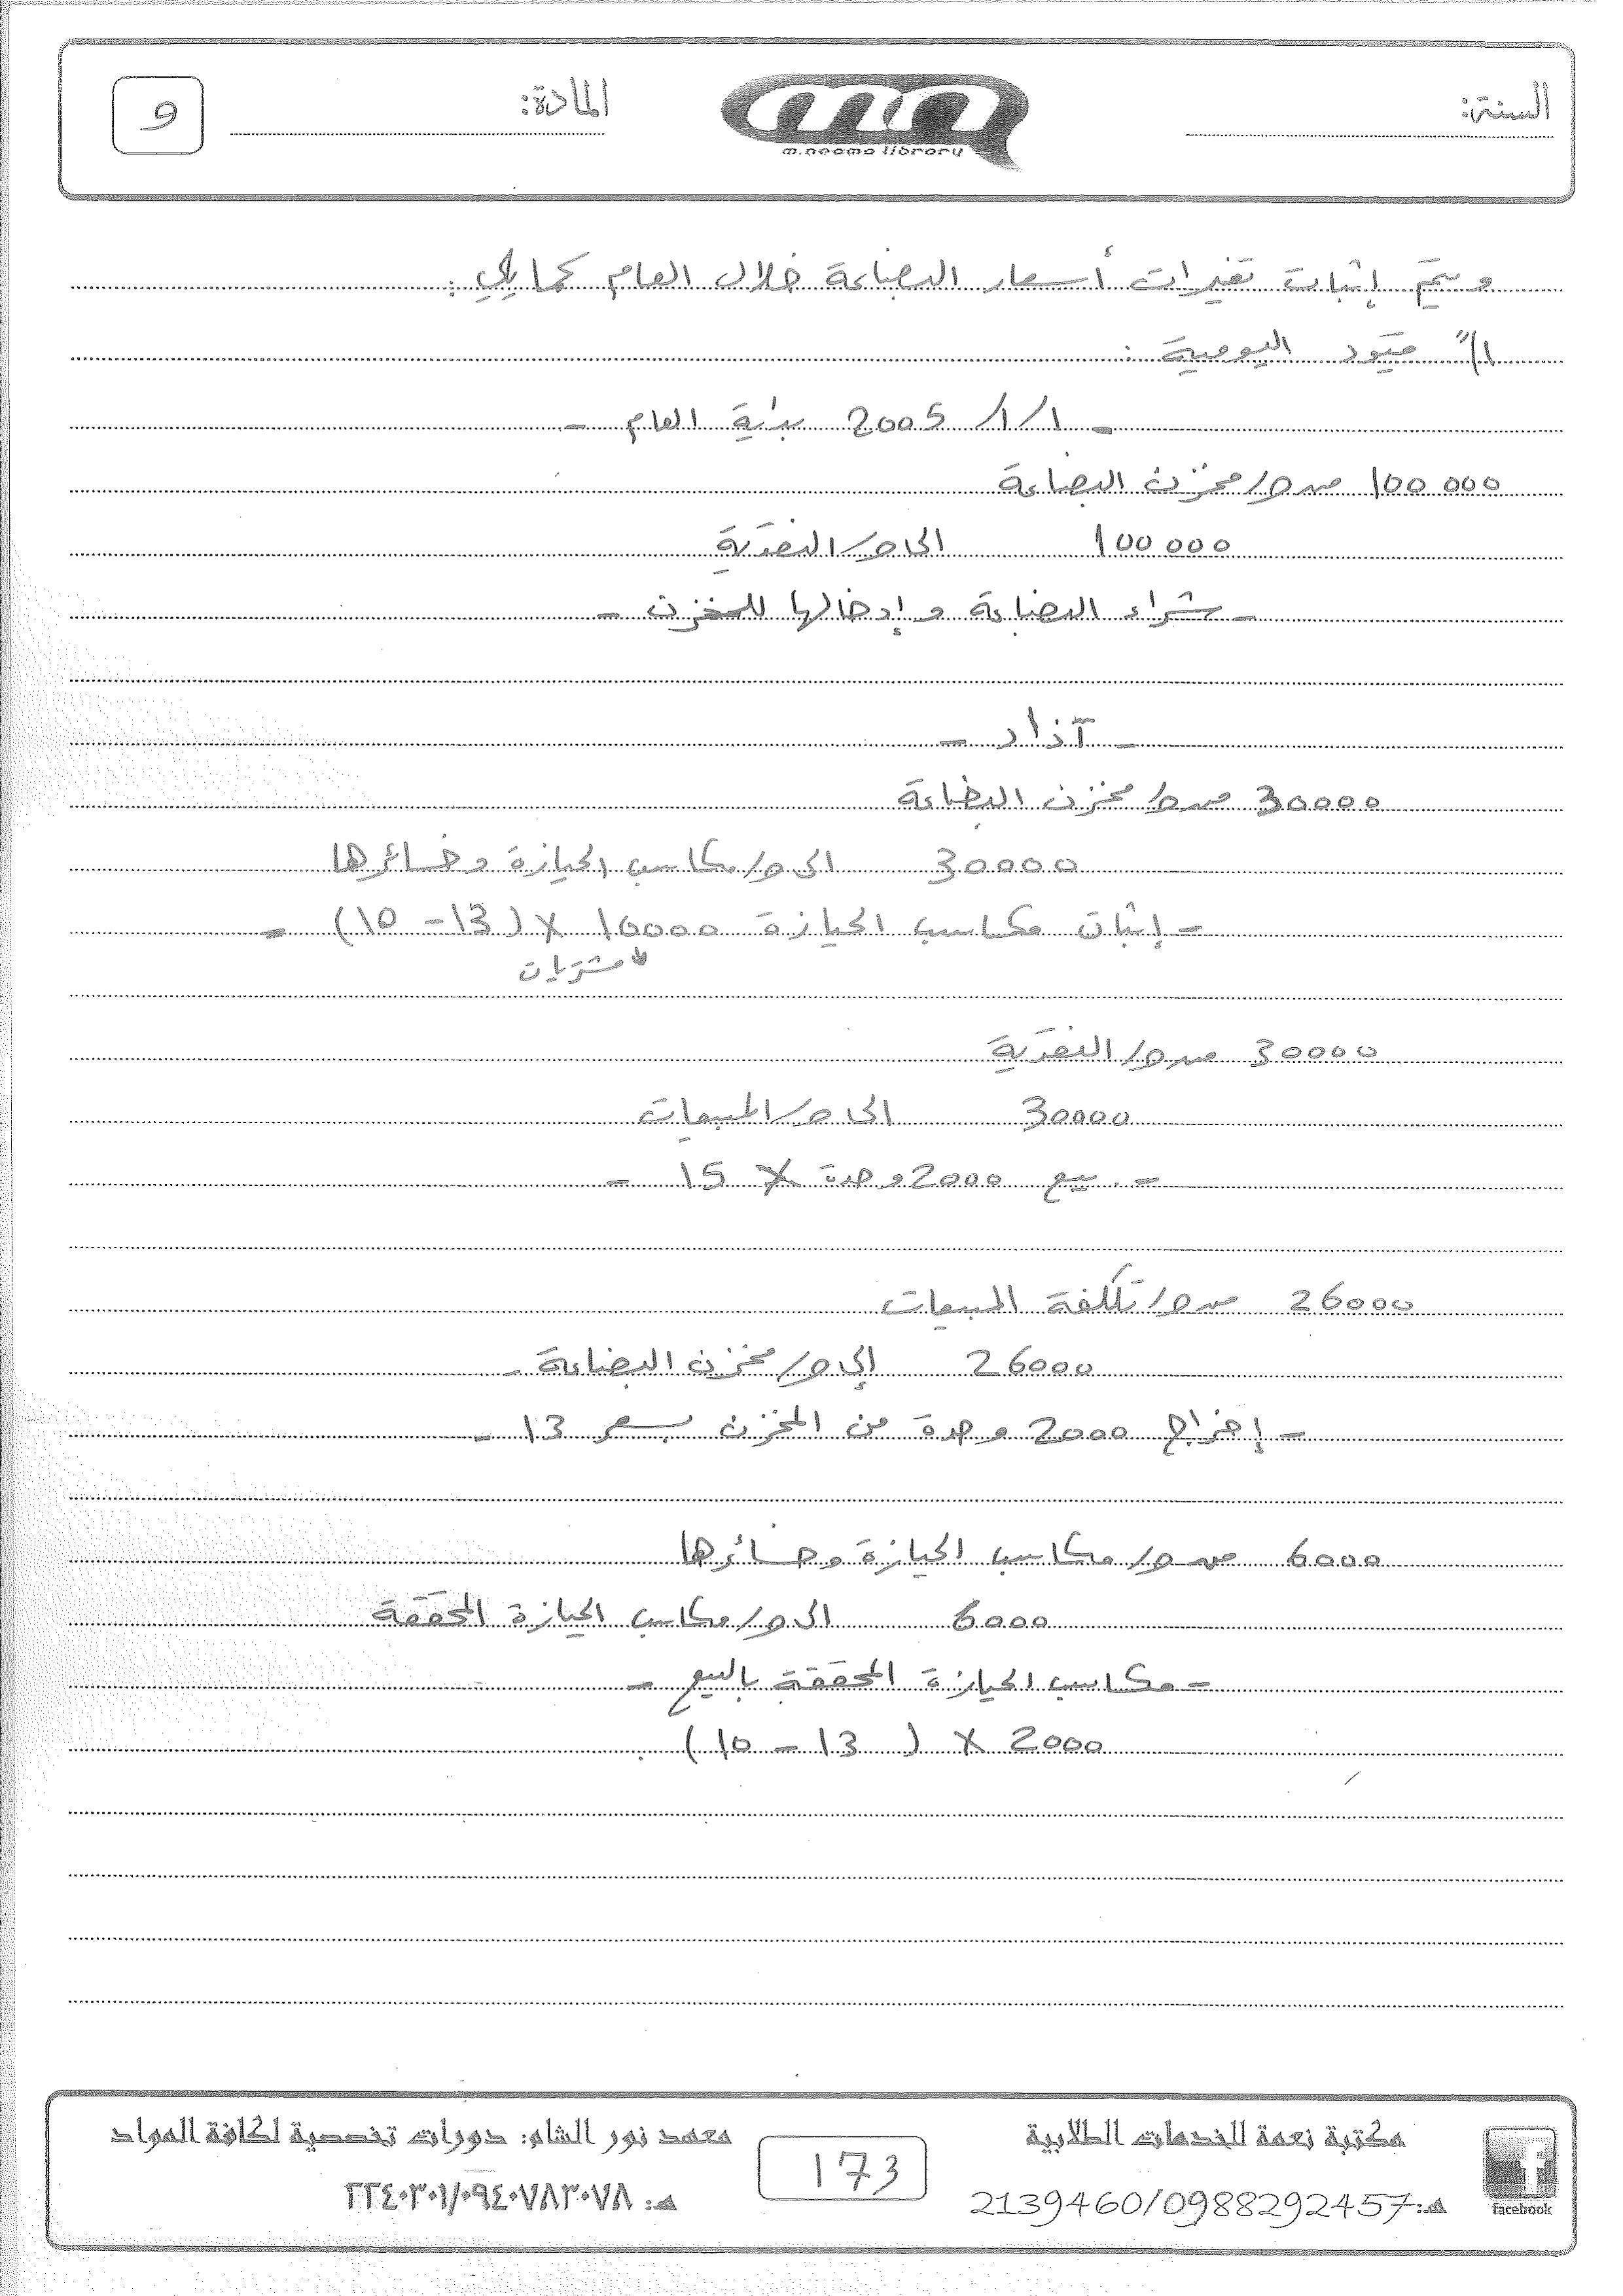 السنة:
m.neama library
المادة:
9
ويتم إثبات تغيرات أسعار البضاعة خلال العام كما يلي:
1") قيود اليومية:
- 1/1/2005 بداية العام -
100000 من حـ/ مخزن البضاعة
100000 الى حـ/ النقدية
- شراء البضاعة وإدخالها للمخزن -
- آذار -
30000 من حـ/ مخزن البضاعة
30000 الى حـ/ مكاسب الحيازة وخسائرها
- إثبات مكاسب الحيازة 10000 × (13 - 10) -
مشتريات
30000 من حـ/ النقدية
30000 الى حـ/ المبيعات
- بيع 2000 وحدة × 15 -
26000 من حـ/ تكلفة المبيعات
26000 إلى حـ/ مخزن البضاعة -
- إخراج 2000 وحدة من المخزن بسعر 13 -
6000 من حـ/ مكاسب الحيازة وخسائرها
6000 الى حـ/ مكاسب الحيازة المحققة
- مكاسب الحيازة المحققة بالبيع -
2000 × (13 - 10)
مكتبة نعمة للخدمات الطلابية
هـ: 2139460/0988292457
facebook
173
معهد نور الشام: دورات تخصصية لكافة المواد
هـ: ٢٢٤٠٣٠١/٠٩٤٠٧٨٣٠٧٨